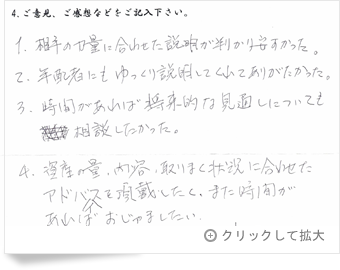 4.ご意見、ご感想などをご記入下さい。
1. 相手の力量に合わせた説明が判かり安すかった。
2. 年配者にもゆっくり説明してくれてありがたかった。
3. 時間があれば将来的な見直しについても
相談したかった。
4. 資産の量、内容、取りまく状況に合わせた
アドバイスを頂戴したく、また時間が
あればおじゃましたい。
クリックして拡大